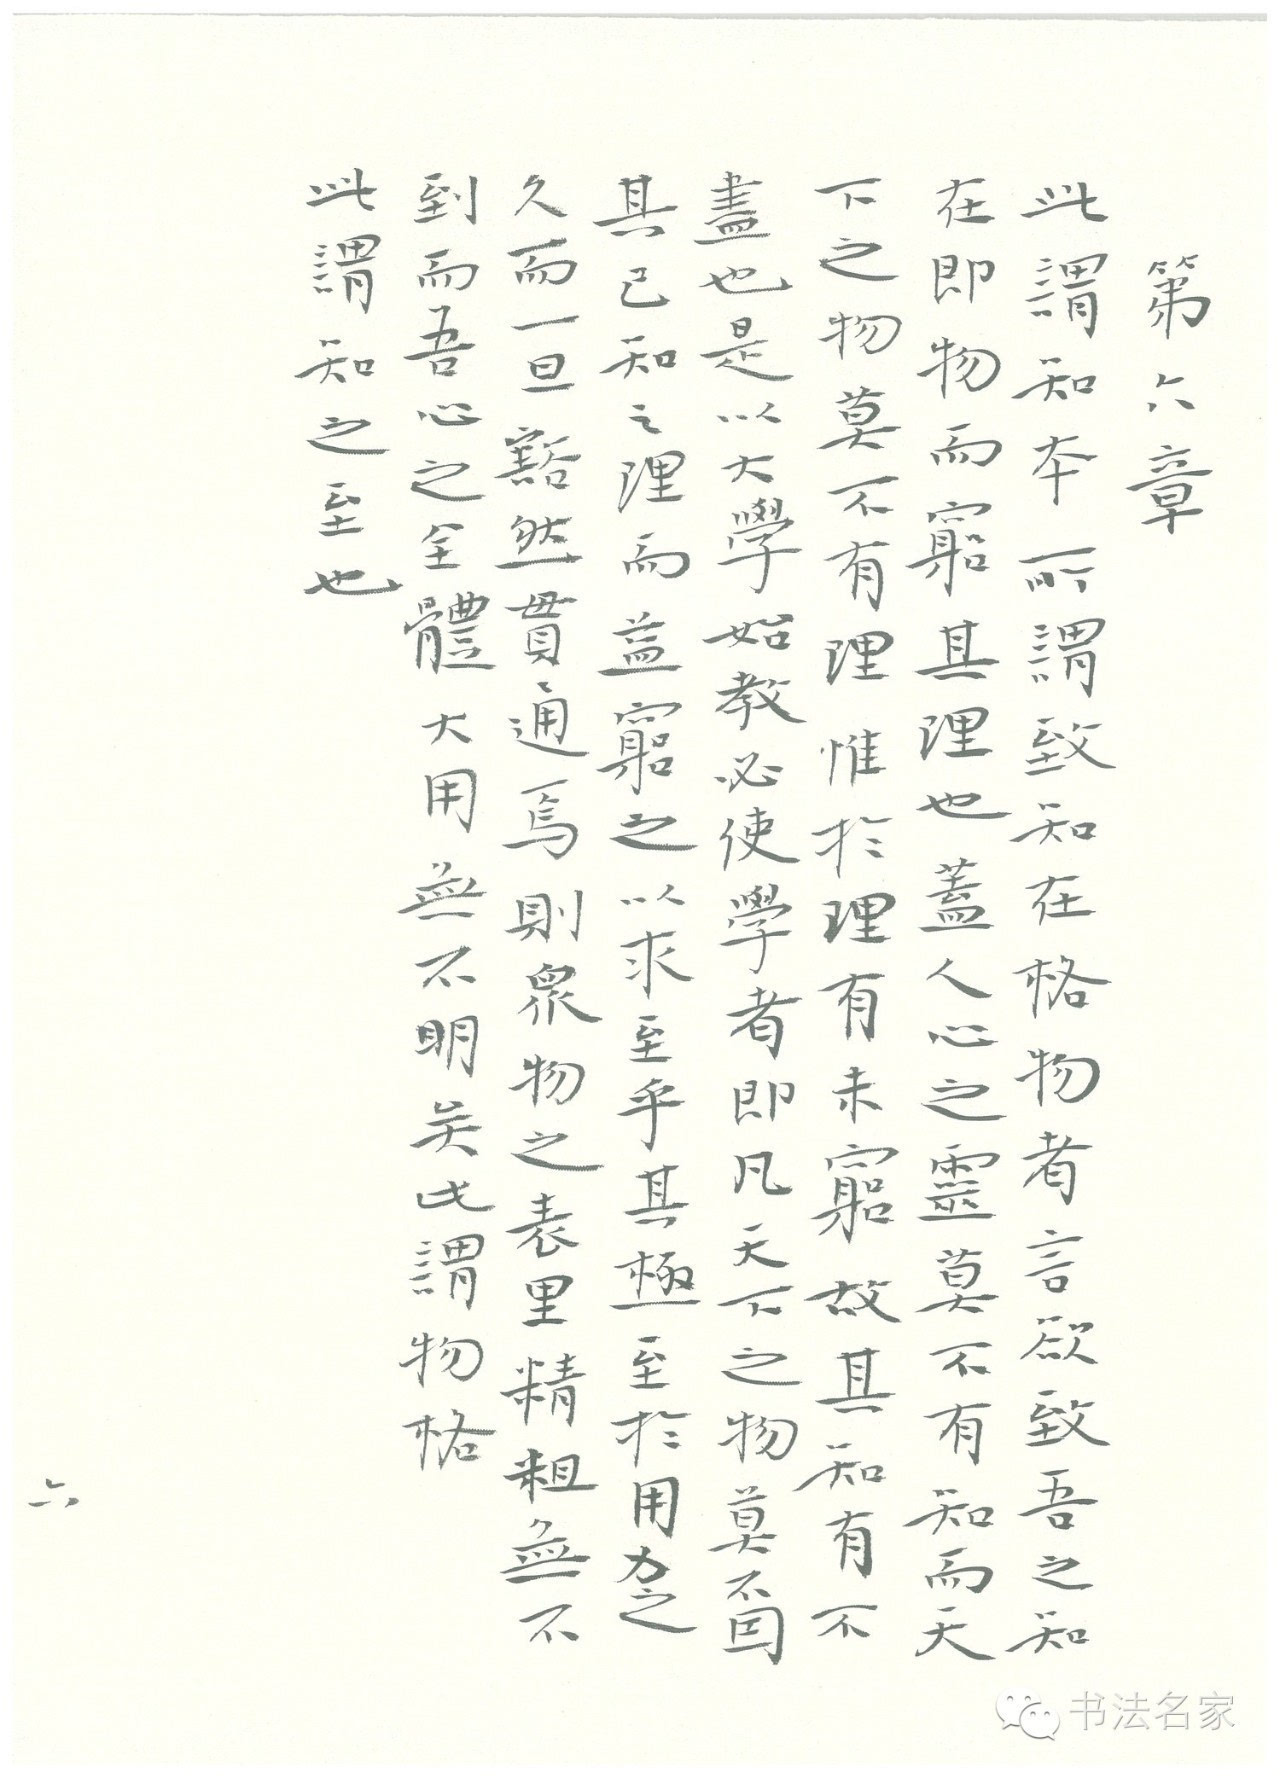 第六章
此謂知本所謂致知在格物者言欲致吾之知
在即物而窮其理也蓋人心之靈莫不有知而天
下之物莫不有理惟於理有未窮故其知有不
盡也是以大學始教必使學者即凡天下之物莫不因
其已知之理而益窮之以求至乎其極至於用力之
久而一旦豁然貫通焉則眾物之表里精粗無不
到而吾心之全體大用無不明矣此謂物格
此謂知之至也
六
书法名家